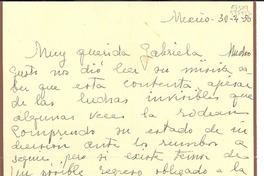 Mexico - 30-4-50
Muy querida Gabriela Mucho
gusto nos dió leer su misiva sa-
ber que está contenta apesar
de las luchas invisibles que
algunas veces la rodean
Comprendo su estado de in
decision ante los rumbos a
seguir, pero si existe temor de
un posible regreso obligado a la